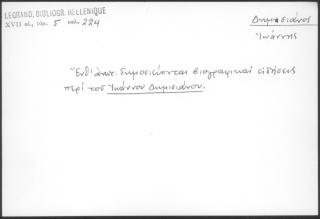 LEGRAND, BIBLIOGR. HELLENIQUE
XVII αἰ, τόμ. 5 σελ. 224
Δημισιάνος
Ἰωάννης
Ἐνθ' ἀνωτ. δημοσιεύονται βιογραφικαὶ εἰδήσεις
περὶ τοῦ Ἰωάννου Δημισιάνου.